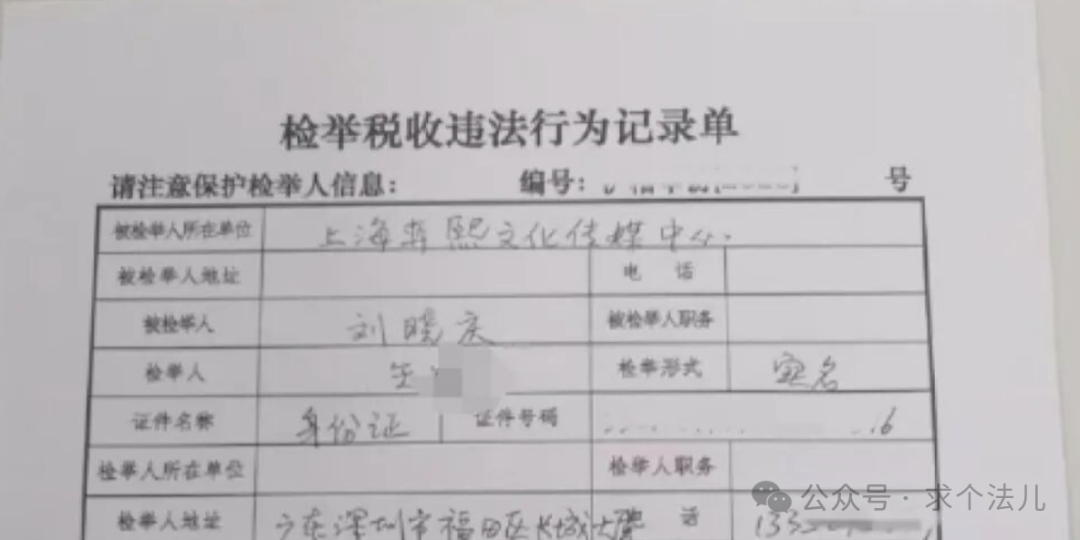 检举税收违法行为记录单
请注意保护检举人信息： 编号： 号
被检举人所在单位 上海 熙文化传媒中心
被检举人地址 电 话
被检举人 刘晓庆 被检举人职务
检举人 检举形式 实名
证件名称 身份证 证件号码 6
检举人所在单位 检举人职务
检举人地址 广东深圳市福田区长城大厦 话 133
公众号·求个法儿